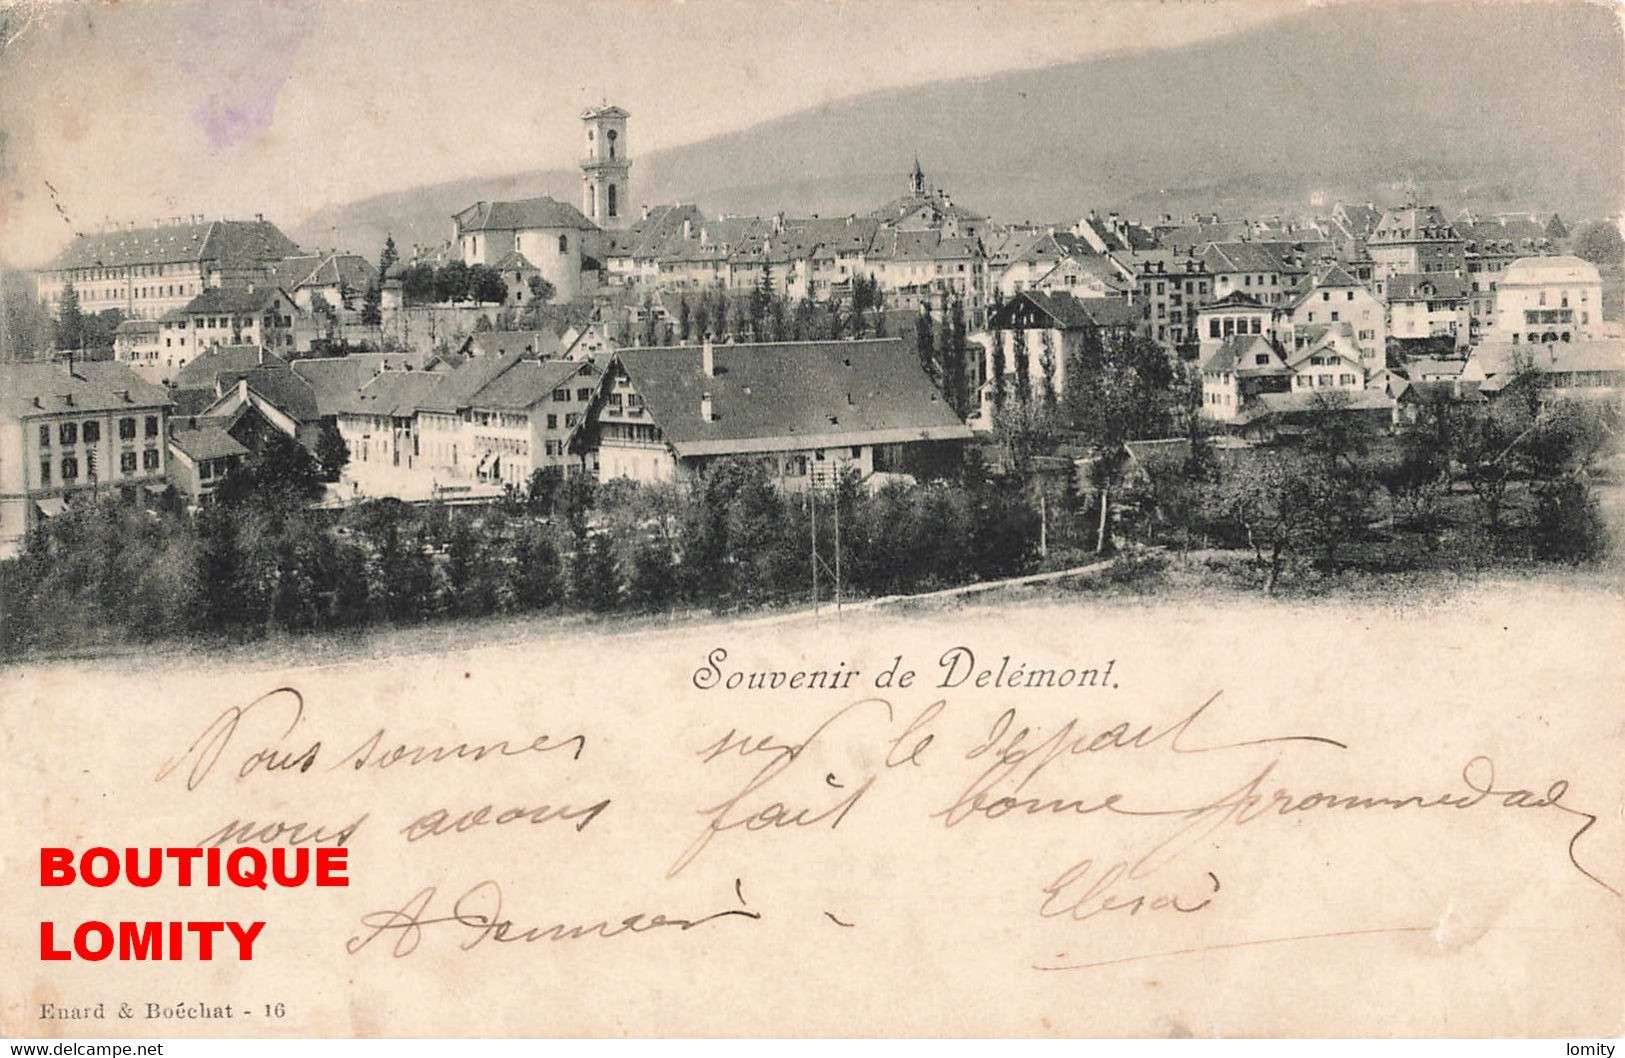 Souvenir de Delémont.
Nous sommes sur le départ
nous avons fait bonne prommedade
BOUTIQUE
LOMITY
A Demain - Elisa
Enard & Boéchat - 16
www.delcampe.net
lomity